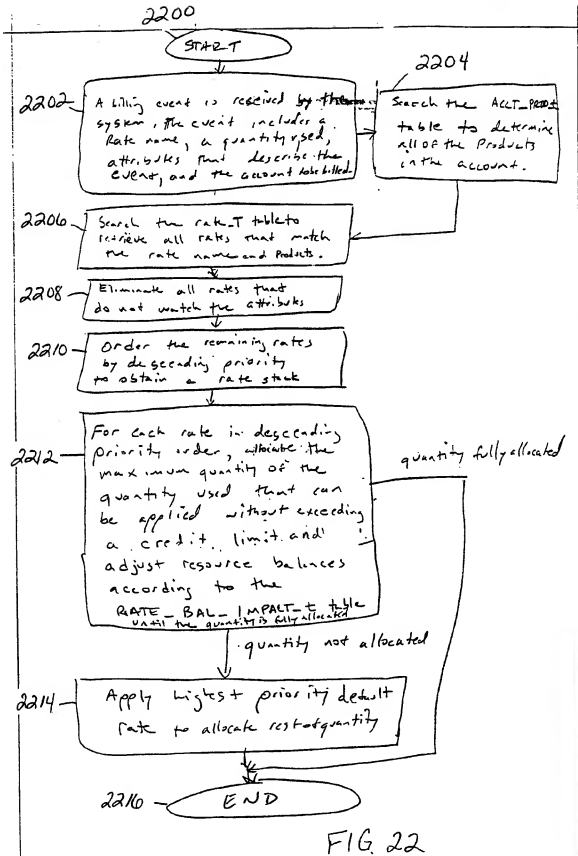 2200
START
2202
A billing event is received by the
system. The event includes a
Rate name, a quantity used,
attributes that describe the
event, and the account to be billed.
2204
Search the ACCT_PROD_t
table to determine
all of the Products
in the account.
2206
Search the rate_T table to
retrieve all rates that match
the rate name and Products.
2208
Eliminate all rates that
do not match the attributes
2210
Order the remaining rates
by descending priority
to obtain a rate stack
2212
For each rate in descending
priority order, allocate the
maximum quantity of the
quantity used that can
be applied without exceeding
a credit limit and
adjust resource balances
according to the
RATE_BAL_IMPACT_t table
until the quantity is fully allocated
quantity fully allocated
quantity not allocated
2214
Apply highest priority default
rate to allocate rest of quantity
2216
END
FIG. 22